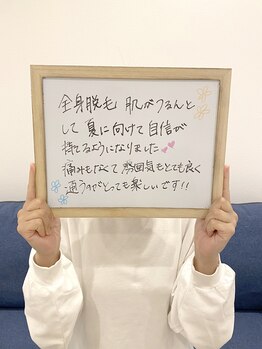 全身脱毛 肌がつるんと
して 夏に向けて自信が
持てるようになりました
痛みもなくて 雰囲気もとても良く
通うのがとっても楽しいです!!